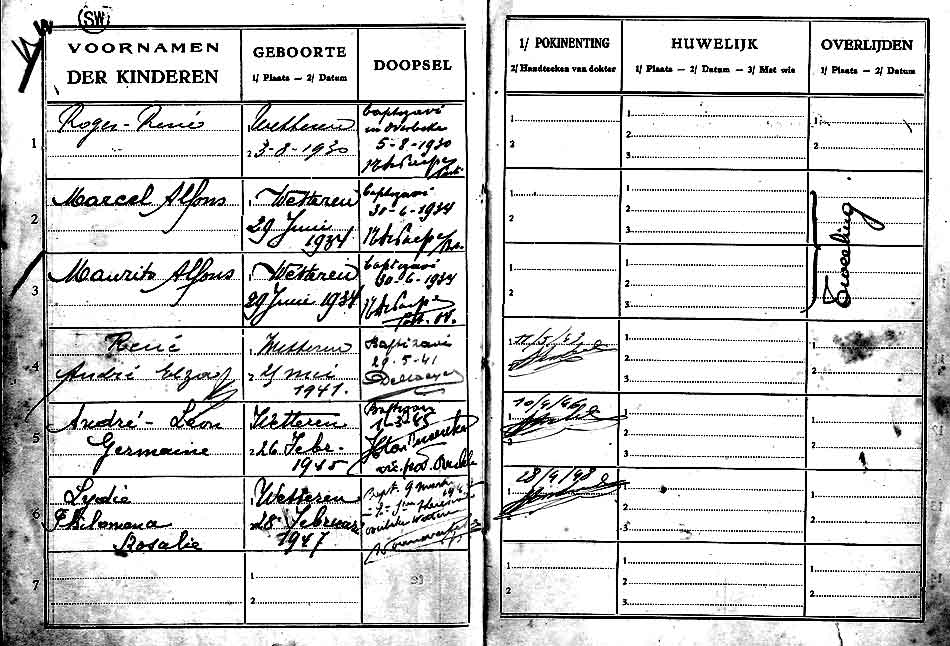 SW
VOORNAMEN
DER KINDEREN
GEBOORTE
1/ Plaats — 2/ Datum
DOOPSEL
1/ POKINENTING
2/ Handteeken van dokter
HUWELIJK
1/ Plaats — 2/ Datum — 3/ Met wie
OVERLIJDEN
1/ Plaats — 2/ Datum
1
Roger-René
1 Wetteren
2 3-8-1930
baptizavi
in Overbeke
5-8-1930
1
2
1
2
3
1
2
2
Marcel Alfons
1 Wetteren
29 Juni
1934
baptizavi
30-6-1934
1
2
1
2
3
Tweeling
3
Maurits Alfons
1 Wetteren
29 Juni 1934
baptizavi
30-6-1934
1
2
1
2
3
4
René
André
1 Wetteren
2 mei
1941.
Baptizavi
29-5-41
1
2
1
2
3
1
2
5
André - Léon
Germaine
Wetteren
26 Febr.
1945
10/4/46
1
2
3
1
2
6
Lydie
Philomena
Rosalie
Wetteren
28 Februari
1947
28/4/48
1
2
3
1
2
7
1
2
1
2
1
2
3
1
2